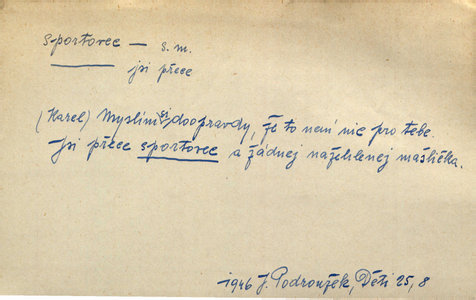 sportovec — s. m.
jsi přece
(Karel) Myslím si doopravdy, že to není nic pro tebe.
Jsi přece sportovec a žádnej nažehlenej mašlička.
1946 J. Podroužek, Děti 25, 8